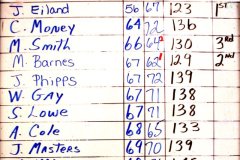 J. Eiland 56 67 123 1ST
C. Money 64 72 136
M. Smith 66 64 130 3RD
M. Barnes 67 62 129 2ND
J. Phipps 67 72 139
W. Gay 67 71 138
S. Lowe 67 71 138
A. Cole 68 65 133
J. Masters 69 70 139